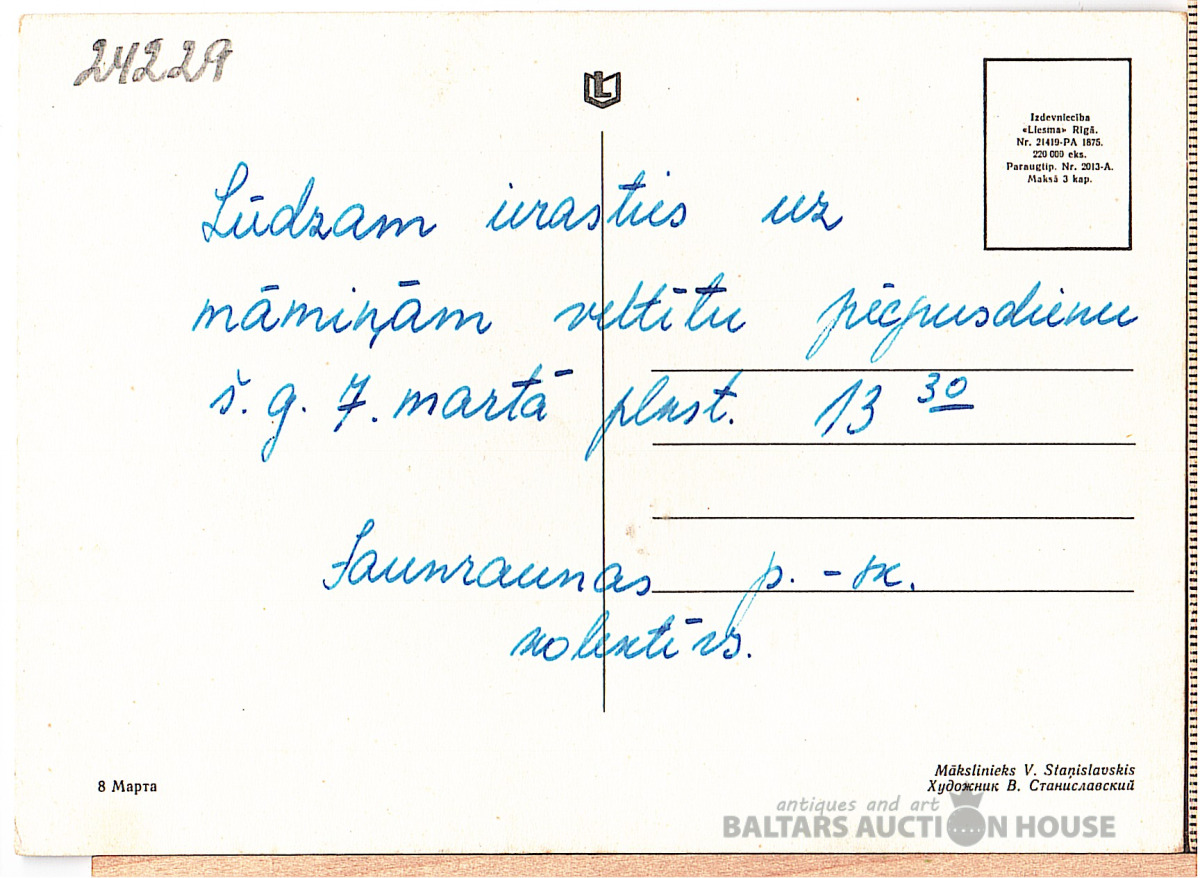 24229
L
Izdevniecība
«Liesma» Rīgā.
Nr. 21419-PA 1875.
220 000 eks.
Parauglip. Nr. 2013-A.
Maksā 3 kap.
Lūdzam ierasties uz
māmiņām veltītu pēcpusdienu
š. g. 7. martā plkst. 13 30
Jaunraunas p. - sk.
kolektīvs.
8 Марта
Mākslinieks V. Staņislavskis
Художник В. Станиславский
antiques and art
BALTARS AUCTION HOUSE